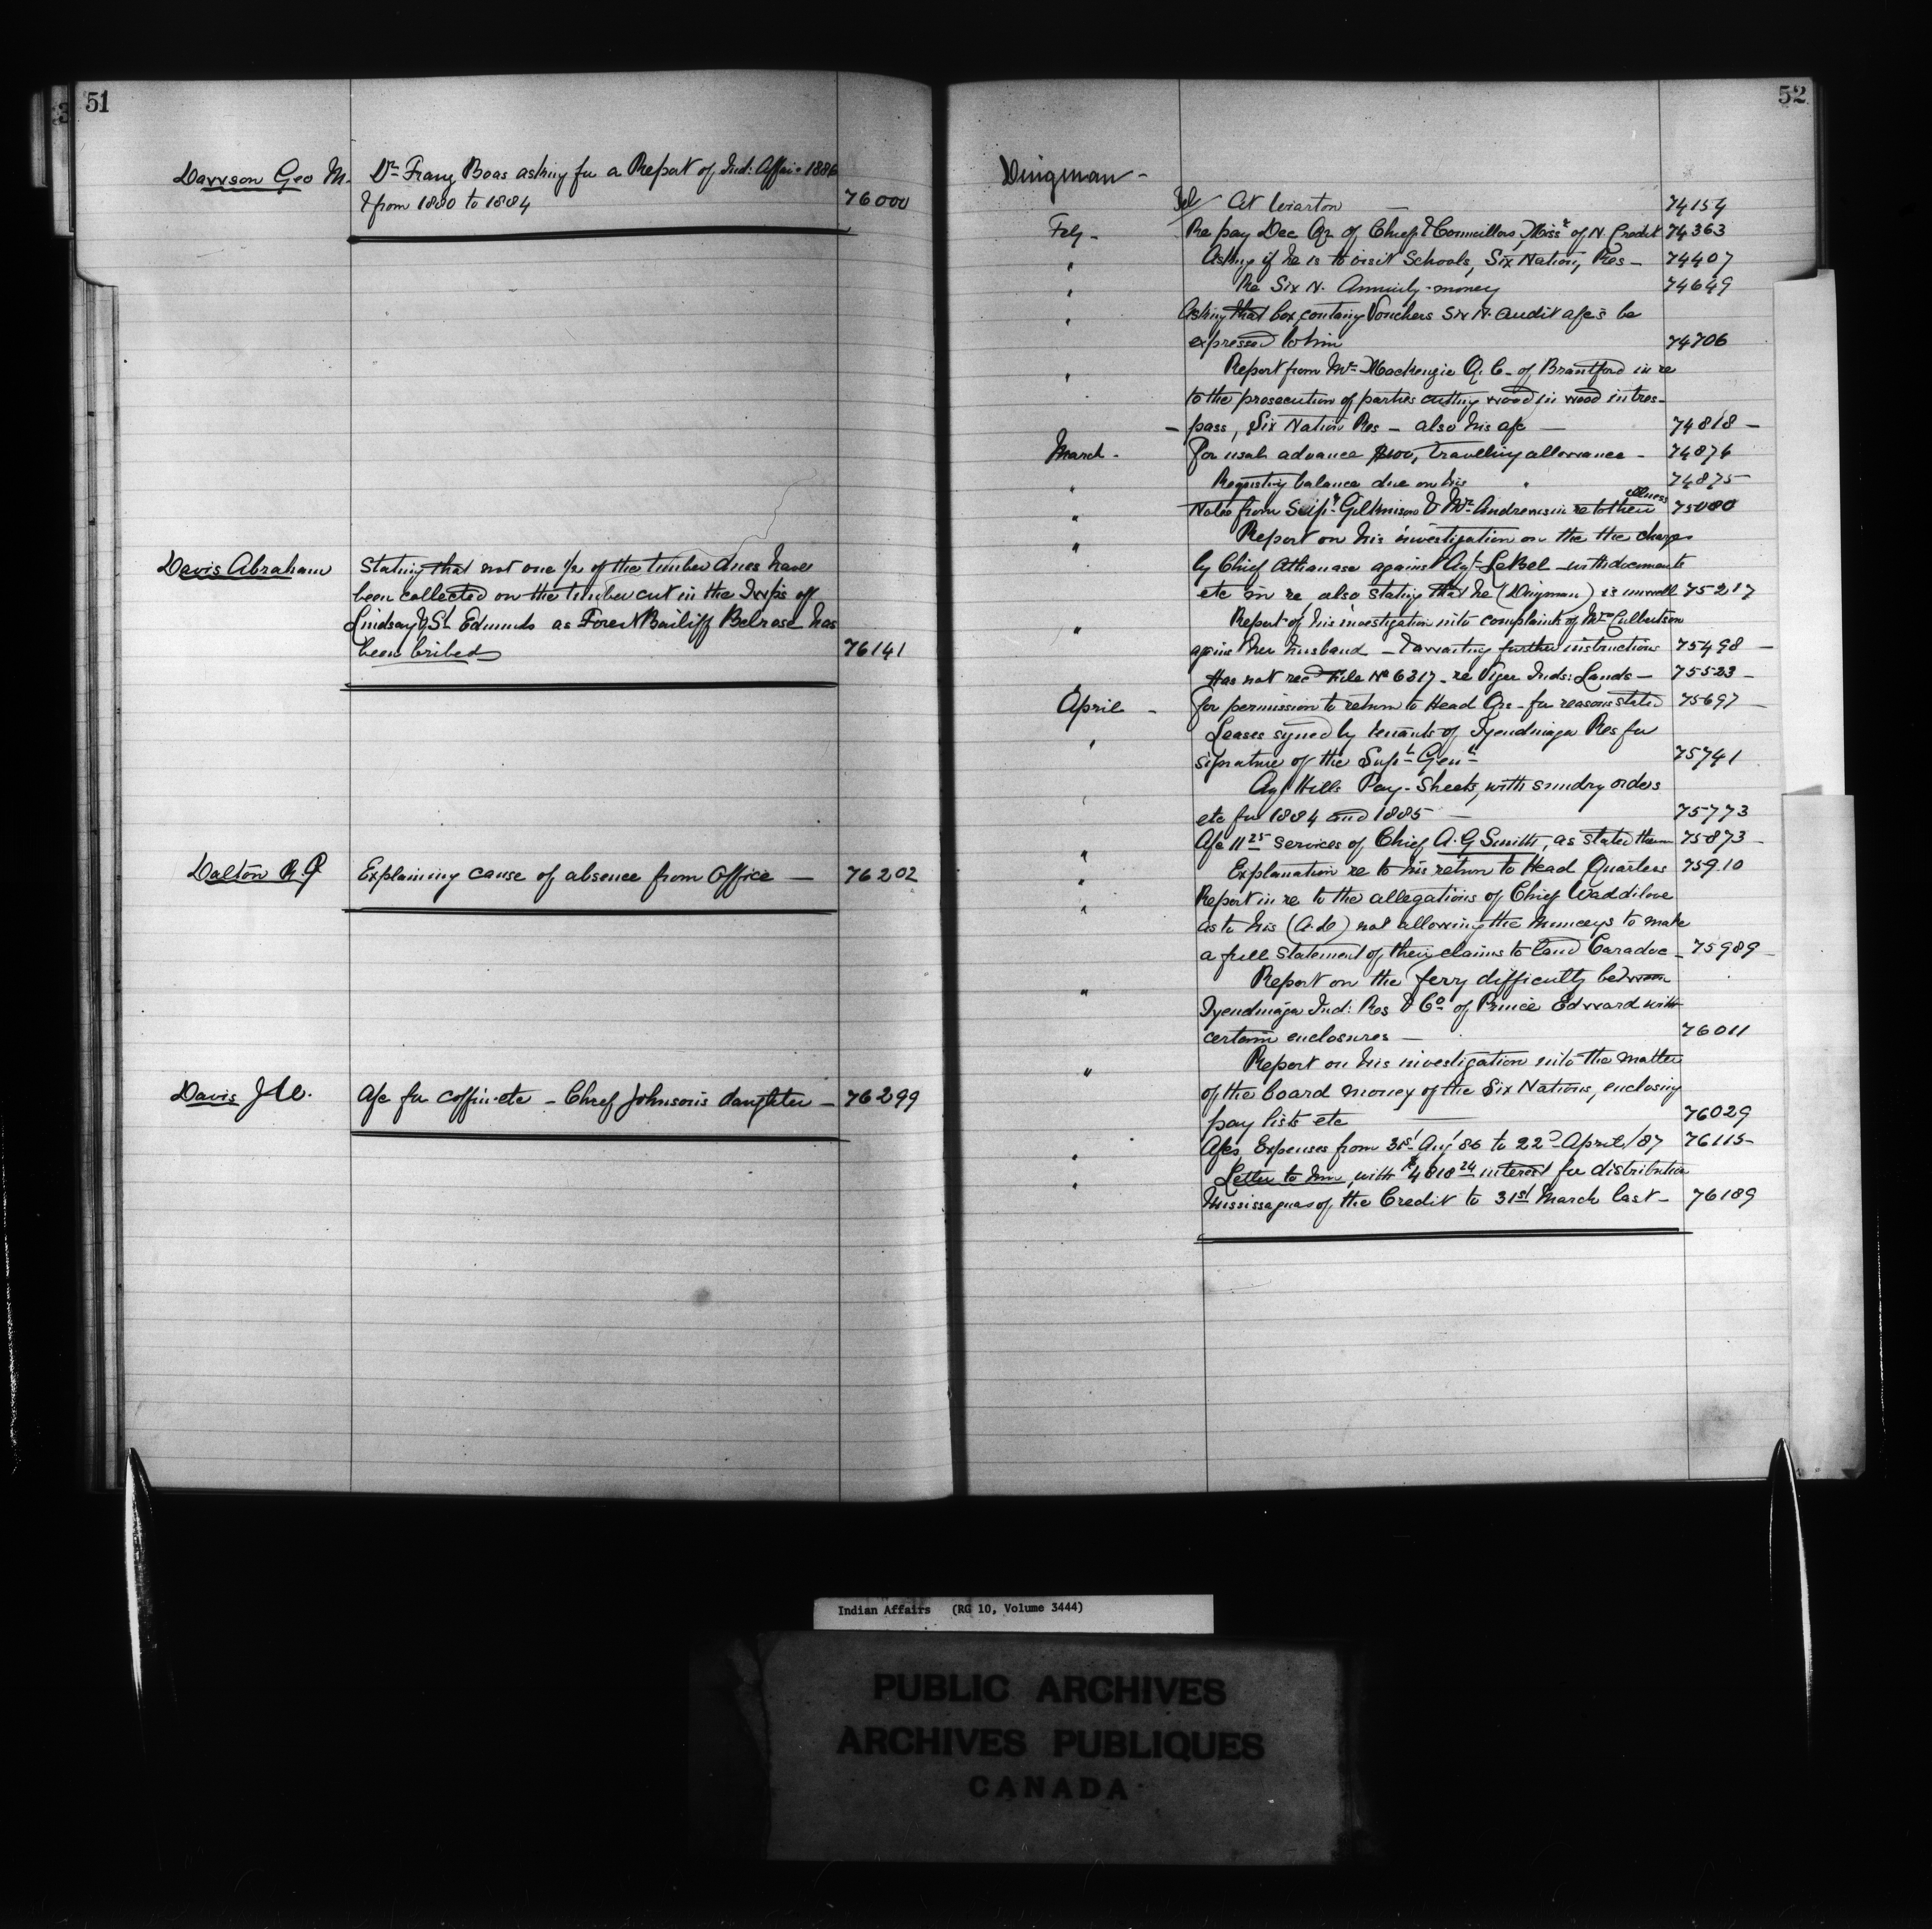 51
Dawson Geo M. Dr Franz Boas asking for a Report of Ind: Affairs 1886
& from 1880 to 1884 76000
Davis Abraham Stating that not one 1/2 of the timber dues have
been collected on the timber cut in the Twps of
Lindsay & St Edmunds as Forest Bailiff Belrose has
been bribed 76141
Dalton R. P Explaining cause of absence from Office — 76202
Davis J. A/c for coffin etc — Chief Johnson's daughter — 76299
52
Dingman -
Tel/ At Wiarton — 74154
Feby - Re pay Dec Qr of Chief & Councillors, Missr of N. Credit 74363
" Asking if he is to visit Schools, Six Nation, Res — 74407
" Re Six N. Annuity-money 74649
" Asking that box containg Vouchers Six N. audit a/cs be
expressed to him 74706
" Report from Mr Mackenzie Q. C. of Brantford in re
to the prosecution of parties cutting wood in wood in tres-
- pass, Six Nation Res — also his a/c — 74818 —
March - for usual advance $100, travelling allowance - 74876
" Requesting balance due on his " 74875
" Notes from Supt Gilkinson & Mr Andrews in re to their illness 75080
" Report on his investigation on the the charges
by Chief Athanase against Agt LeBel — with documents
etc in re also stating that he (Dingman) is unwell 75217
" Report of his investigation into complaints of Mrs Culbertson
against her husband — & awaiting further instructions 75498 —
Has not recd File No 6317 - re Viger Inds: Lands — 75523 -
April - for permission to return to Head Qrs - for reasons stated 75697 —
" Leases signed by tenants of Tyendinaga Res for
signature of the Supt Genl 75741
" Agt Hills Pay-Sheets, with sundry orders
etc for 1884 and 1885 — 75773
" A/c 11 25 services of Chief A. G Smith, as stated therein 75873 -
" Explanation re to his return to Head Quarters 75910
" Report in re to the allegations of Chief Waddilove
as to his (A.D) not allowing the Munceys to make
a full statement of their claims to land Caradoc - 75989 -
" Report on the ferry difficulty between
Tyendinaga Ind: Res & Co of Prince Edward with
certain enclosures — 76011
" Report on his investigation into the matter
of the board money of the Six Nations, enclosing
pay lists etc 76029
" A/cs, Expenses from 31st Aug 86 to 22d April/87 76115-
" Letter to him, with $4818 24 interest for distribution
Mississaguas of the Credit to 31st March last - 76189
Indian Affairs (RG 10, Volume 3444)
PUBLIC ARCHIVES
ARCHIVES PUBLIQUES
CANADA